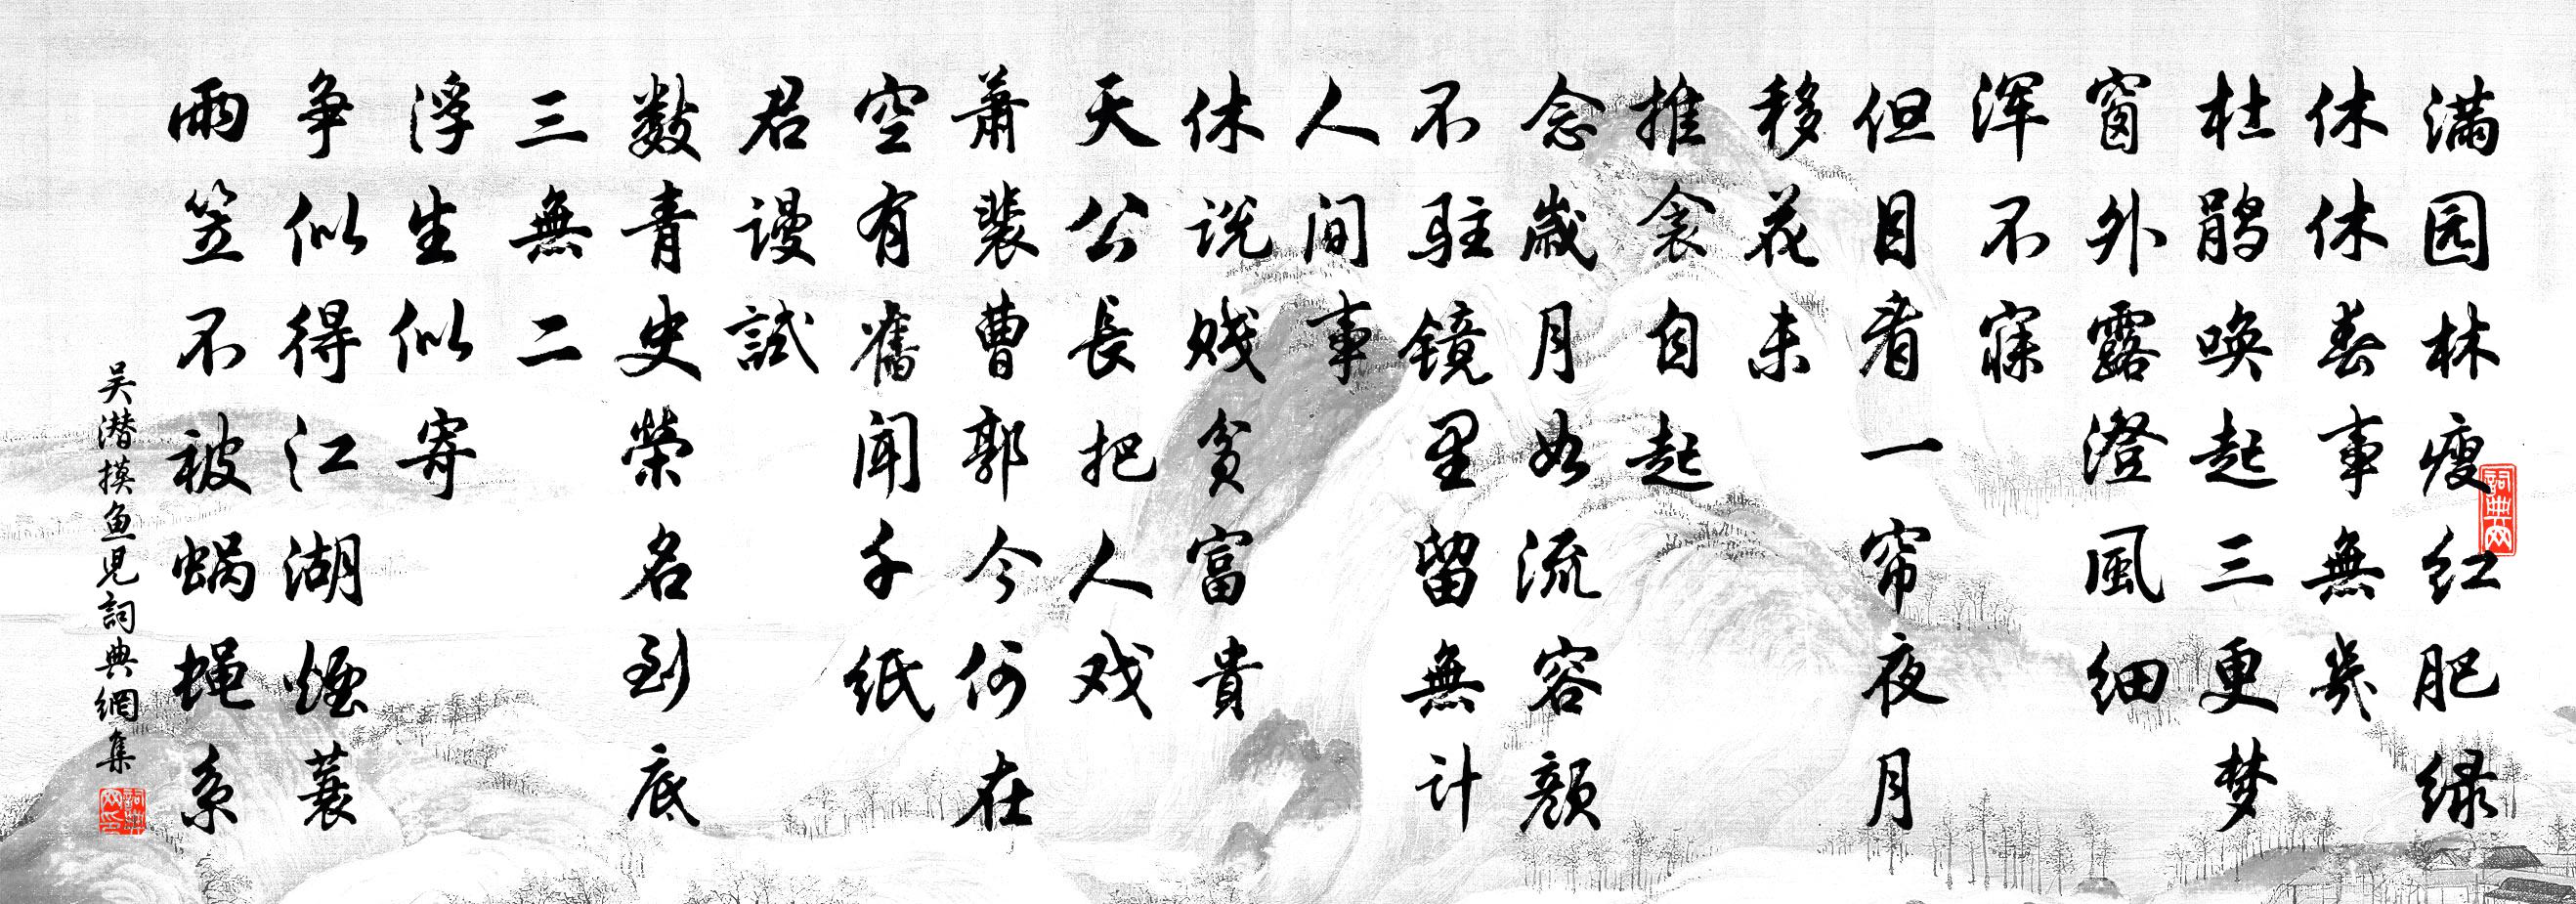 满园林瘦红肥绿
休休春事無幾
杜鹃唤起三更梦
窗外露澄風细
浑不寐
但目看一帘夜月
移花未
推衾自起
念歲月如流容颜
不驻镜里留無计
人间事
休说贱贫富貴
天公長把人戏
萧裴曹郭今何在
空有舊闻千纸
君谩試
数青史榮名到底
三無二
浮生似寄
争似得江湖煙蓑
雨笠不被蜗蝇系
吴潜摸鱼兒詞典網集
詞典网